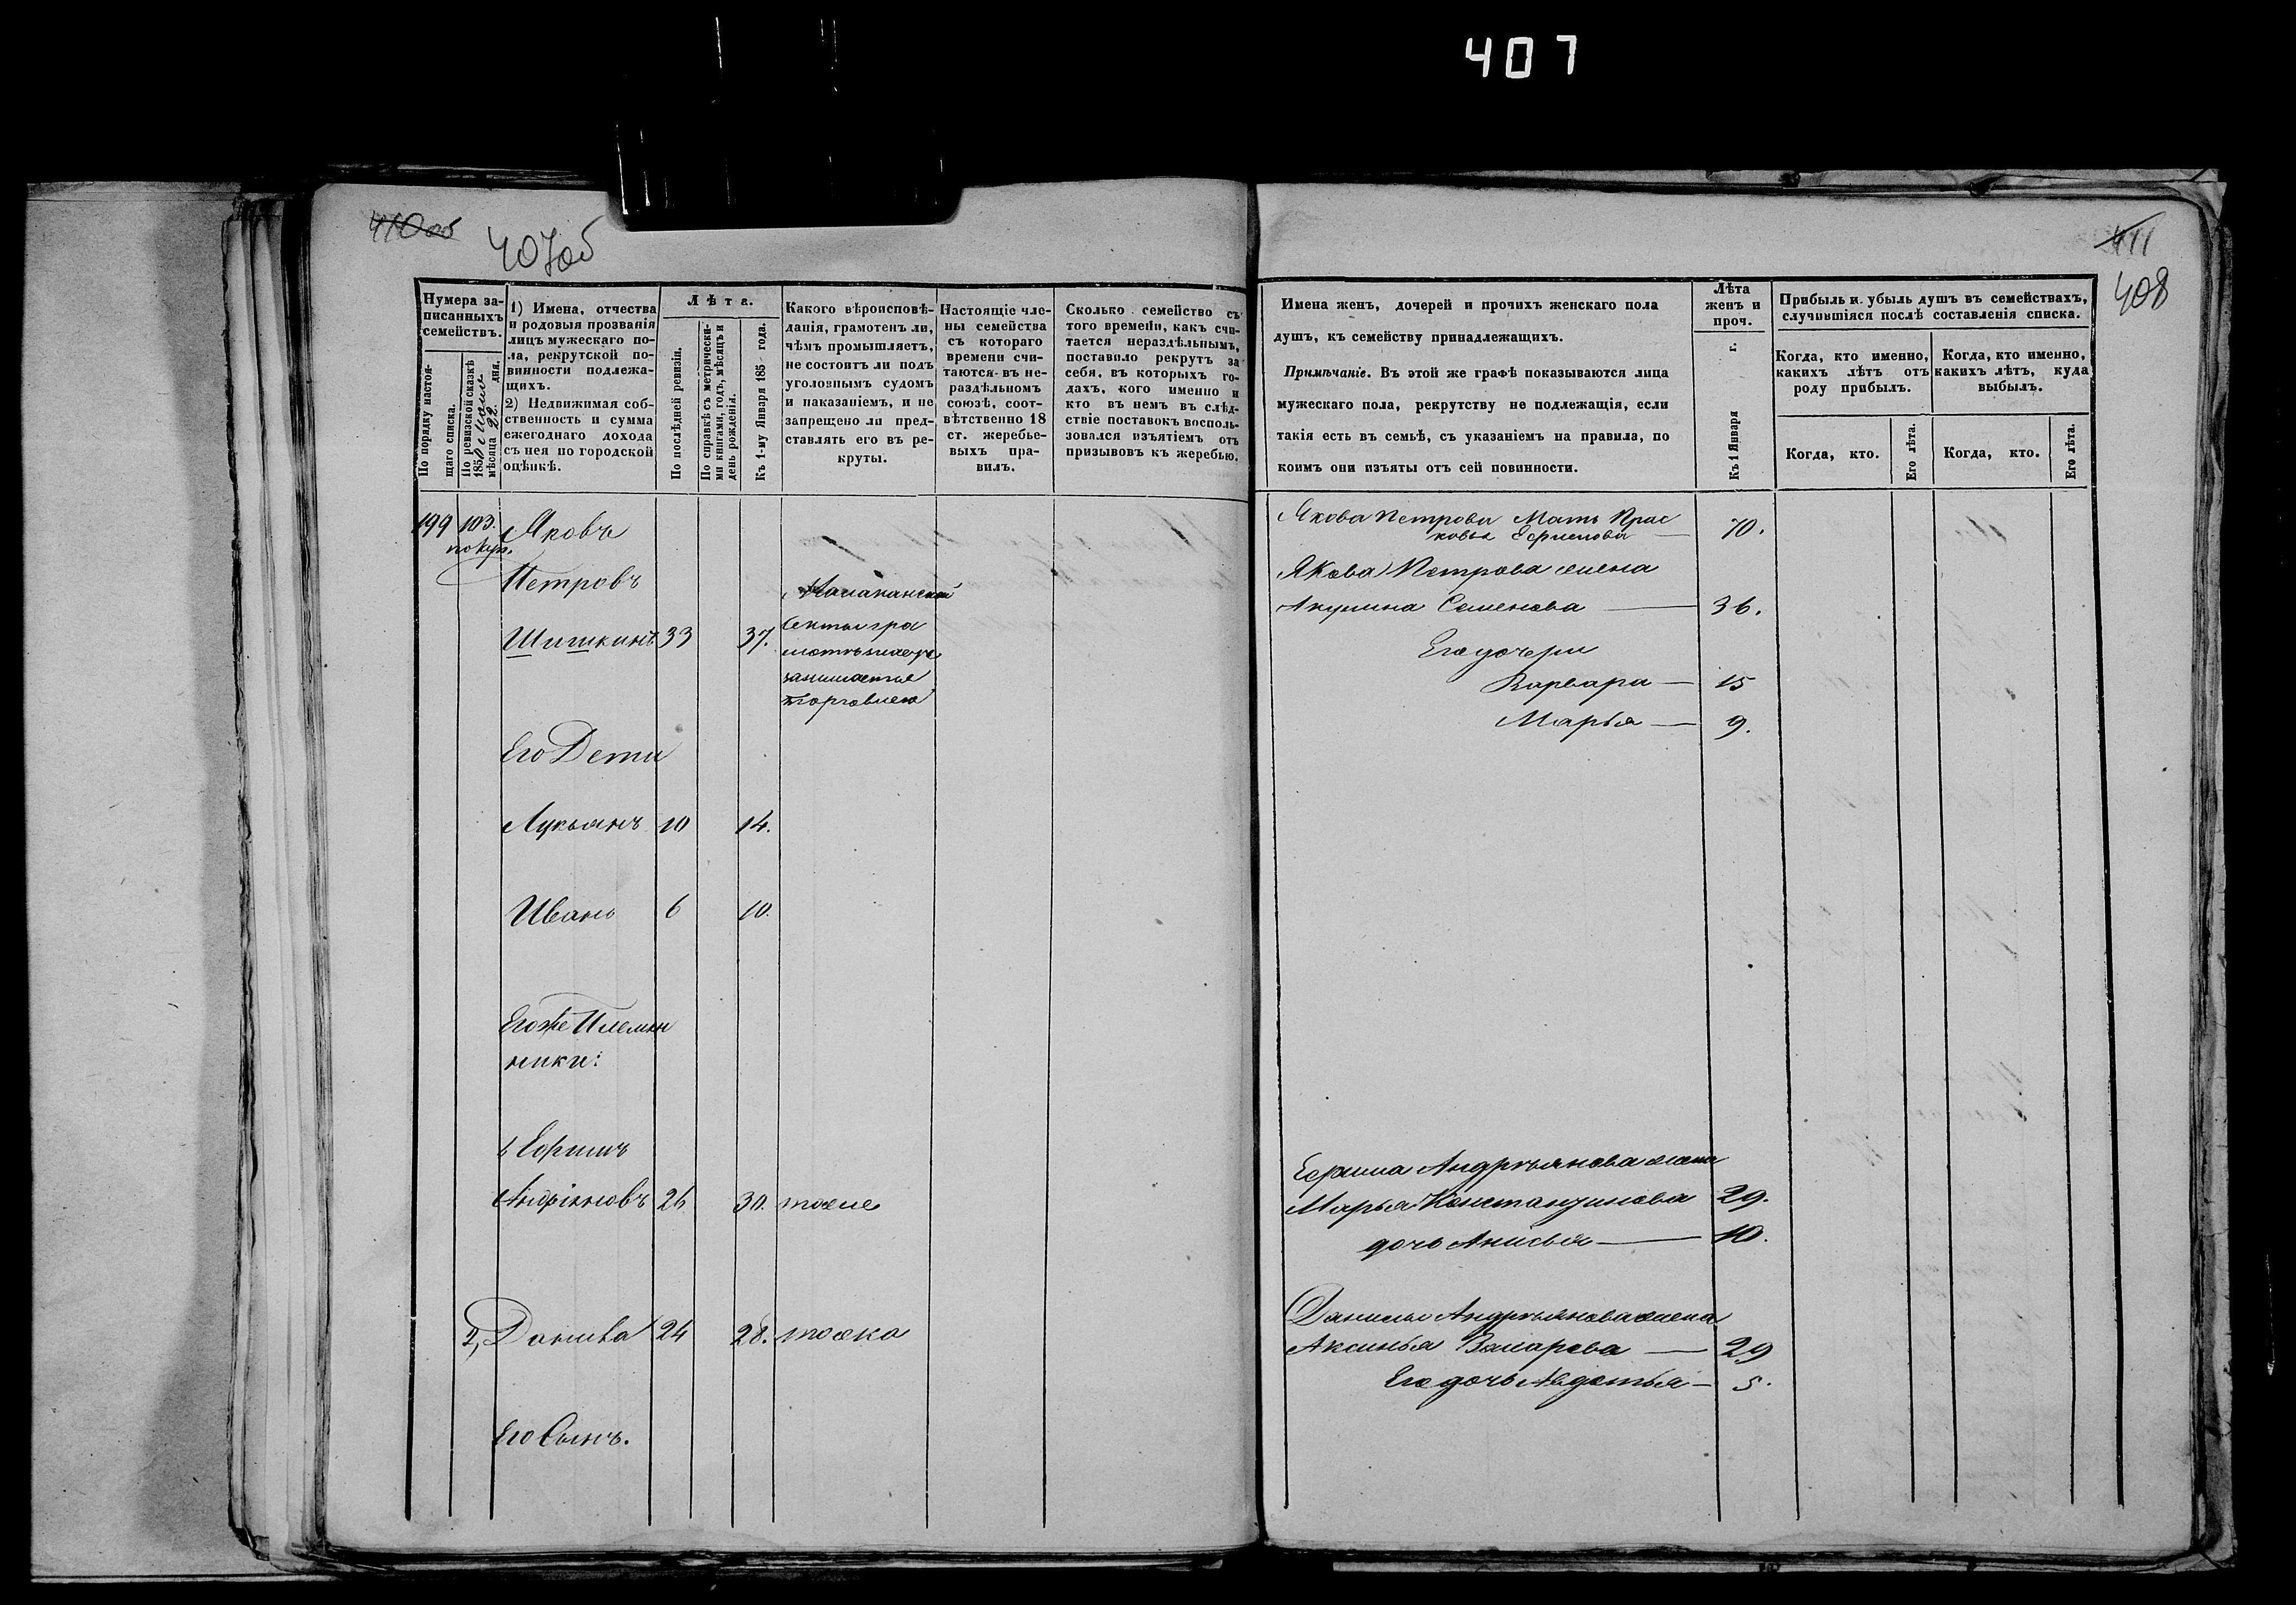 407
410 об
407об
Нумера за-
писанныхъ
семействъ.
По порядку настоя-
щаго списка.
По ревизской сказкѣ
1850 г. Маия
мѣсяца 22. дня.
1) Имена, отчества
и родовыя прозванія
лицъ мужескаго по-
ла, рекрутской по-
винности подлежа-
щихъ.
2) Недвижимая соб-
ственность и сумма
ежегоднаго дохода
съ нея по городской
оцѣнкѣ.
Лѣта.
По послѣдней ревизіи.
По справкѣ съ метрически-
ми книгами, годъ, мѣсяцъ и
день рожденія.
Къ 1-му Января 185 года.
Какого вѣроисповѣ-
данія, грамотенъ ли,
чѣмъ промышляетъ,
не состоитъ ли подъ
уголовнымъ судомъ
и наказаніемъ, и не
запрещено ли пред-
ставлять его въ ре-
круты.
Настоящіе чле-
ны семейства
съ котораго
времени счи-
таются въ не-
раздѣльномъ
союзѣ, соот-
вѣтственно 18
ст. жеребье-
выхъ пра-
вилъ.
Сколько семейство съ
того времени, какъ счи-
тается нераздѣльнымъ,
поставило рекрутъ за
себя, въ которыхъ го-
дахъ, кого именно и
кто въ немъ въ слѣд-
ствіе поставокъ восполь-
зовался изъятіемъ отъ
призывовъ къ жеребью.
199 103. Яковъ
Петровъ
Шишкинъ 33 37.
Секты гра
занимается
торговлею
Его Дети
Лукьянъ 10 14.
Иванъ 6 10.
Его же Племян
ники:
Ефимъ
Андріяновъ 26 30. тоже
2, Данила 24 28. тоже
Его Сынъ.
411
408
Имена женъ, дочерей и прочихъ женскаго пола
душъ, къ семейству принадлежащихъ.
Примѣчаніе. Въ этой же графѣ показываются лица
мужескаго пола, рекрутству не подлежащія, если
такія есть въ семьѣ, съ указаніемъ на правила, по
коимъ они изъяты отъ сей повинности.
Лѣта
женъ и
проч.
Къ 1 Января г.
Прибыль и убыль душъ въ семействахъ,
случившіяся послѣ составленія списка.
Когда, кто именно,
какихъ лѣтъ отъ
роду прибылъ.
Когда, кто именно,
какихъ лѣтъ, куда
выбылъ.
Когда, кто.
Его лѣта.
Когда, кто.
Его лѣта.
Якова Петрова Мать Прас
ковья Ефимова 70.
Якова Петрова жена
Акулина Семенова 36.
Его дочери
Варвара 15
Марья 9.
Ефима Андрѣянова жена
Марья Константинова 29.
дочь Анисья 10.
Данилы Андрѣянова жена
Аксинья 29
Его дочь Авдотья 5.